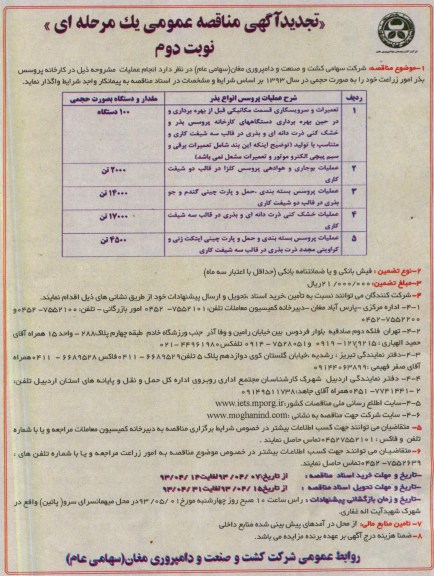 «تجدیدآگهی مناقصه عمومی یك مرحله ای»
نوبت دوم
۱-موضوع مناقصه: شرکت سهامی کشت و صنعت و دامپروری مغان(سهامی عام) در نظر دارد انجام عملیات مشروحه ذیل در کارخانه پروسس
بذر امور زراعت خود را به صورت حجمی در سال ۱۳۹۳ بر اساس شرایط و مشخصات در اسناد مناقصه به پیمانکار واجد شرایط واگذار نماید.
ردیف شرح عملیات پروسس انواع بذر مقدار و دستگاه بصورت حجمی
۱ تعمیرات و سرویسکاری قسمت مکانیکی قبل از بهره برداری و ۱۰۰ دستگاه
در حین بهره برداری دستگاههای کارخانه پروسس بذر و
خشک کنی ذرت دانه ای و بذری در قالب سه شیفت کاری و
متناسب با تولید (توضیح اینکه این بند شامل تعمیرات برقی و
سیم پیچی الکترو موتور و تعمیرات مشعل نمی باشد)
۲ عملیات بوجاری و هوادهی پروسس کلزا در قالب دو شیفت ۲۰۰۰ تن
کاری
۳ عملیات پروسس بسته بندی ،حمل و پارت چینی گندم و جو ۱۴۰۰۰ تن
بذری در قالب دو شیفت کاری
۴ عملیات خشک کنی ذرت دانه ای و بذری در قالب سه شیفت ۱۷۰۰۰ تن
کاری
۵ عملیات پروسس بسته بندی و حمل و پارت چینی اینکت زنی و ۴۵۰۰ تن
کراوینی مجدد ذرت بذری در قالب سه شیفت کاری
۲-نوع تضمین : فیش بانکی و یا ضمانتنامه بانکی (حداقل با اعتبار سه ماه)
۳-مبلغ تضمین: ۲۱/۰۰۰/۰۰۰ریال
۴-شرکت کنندگان می توانند نسبت به تأمین خرید اسناد ،تحویل و ارسال پیشنهادات خود از طریق نشانی های ذیل اقدام نمایند.
۴-۱- اداره مرکزی -پارس آباد مغان -دبیرخانه کمیسیون معاملات تلفن: ۷۵۵۲۱۰۱-۰۴۵۲ امور بازرگانی - تلفن: ۷۵۵۲۱۰۰-۰۴۵۲و
۷۵۵۲۲۰۰-۰۴۵۲
۴-۲- تهران فلکه دوم صادقیه بلوار فردوس بین خیابان رامین و وفا آذر جنب ورزشگاه خادم طبقه چهارم پلاک۲۸۸ - واحد ۱۵ همراه آقای
حمید الهیاری :
۴-۳-دفتر نمایندگی تبریز : رشدیه ،خیابان گلستان کوی دوازدهم پلاک ۵ تلفن:۶۶۸۹۵۲۹-۰۴۱۱فاکس ۶۶۸۹۵۲۸-۰۴۱۱همراه
آقای صفر فهیمی :
۴-۴- دفتر نمایندگی اردبیل شهرک کارشناسان مجتمع اداری روبروی اداره کل حمل و نقل و پایانه های استان اردبیل تلفن:
۷۷۴۱۳۴۱-۲-۰۴۵۱همراه آقای جاهد:۰۹۱۴۹۵۱۱۷۳۸
۴-۵-سایت اطلاع رسانی ملی مناقصات کشور:www.iets.mporg.ir
۴-۶- سایت شرکت جهت مناقصه به نشانی : www.moghanind.com
۵- متقاضیان می توانند جهت کسب اطلاعات بیشتر در خصوص شرایط برگزاری مناقصه به دبیرخانه کمیسیون معاملات مراجعه و یا با شماره
تلفن و فاکس : ۰۴۵۲۷۵۵۲۱۰۱تماس حاصل نمایند.
۶-متقاضیان می توانند جهت کسب اطلاعات بیشتر در خصوص موضوع مناقصه به امور زراعت مراجعه و یا با شماره تلفن های :
۷۵۵۲۶۳۹-۰۴۵۲تماس حاصل نمایند.
-تاریخ و مهلت خرید اسناد مناقصه : از تاریخ:۹۳/۰۴/۰۷لغایت۹۳/۰۴/۱۴
-تاریخ و مهلت تحویل اسناد مناقصه : از تاریخ:۹۳/۰۴/۱۵لغایت۹۳/۰۴/۳۱
-تاریخ و زمان بازگشائی پیشنهادات : راس ساعت ۱۰ صبح روز چهارشنبه مورخ۹۳/۰۵/۰۱در محل میهمانسرای سرو( پائین) واقع در
شهرک شهیدآیت اله غفاری.
۷-تامین منابع مالی: از محل در آمدهای پیش بینی شده منابع داخلی
۸-ضمنا هزینه درج آگهی بر عهده برنده مزایده می باشد.
روابط عمومی شرکت کشت و صنعت و دامپروری مغان(سهامی عام)